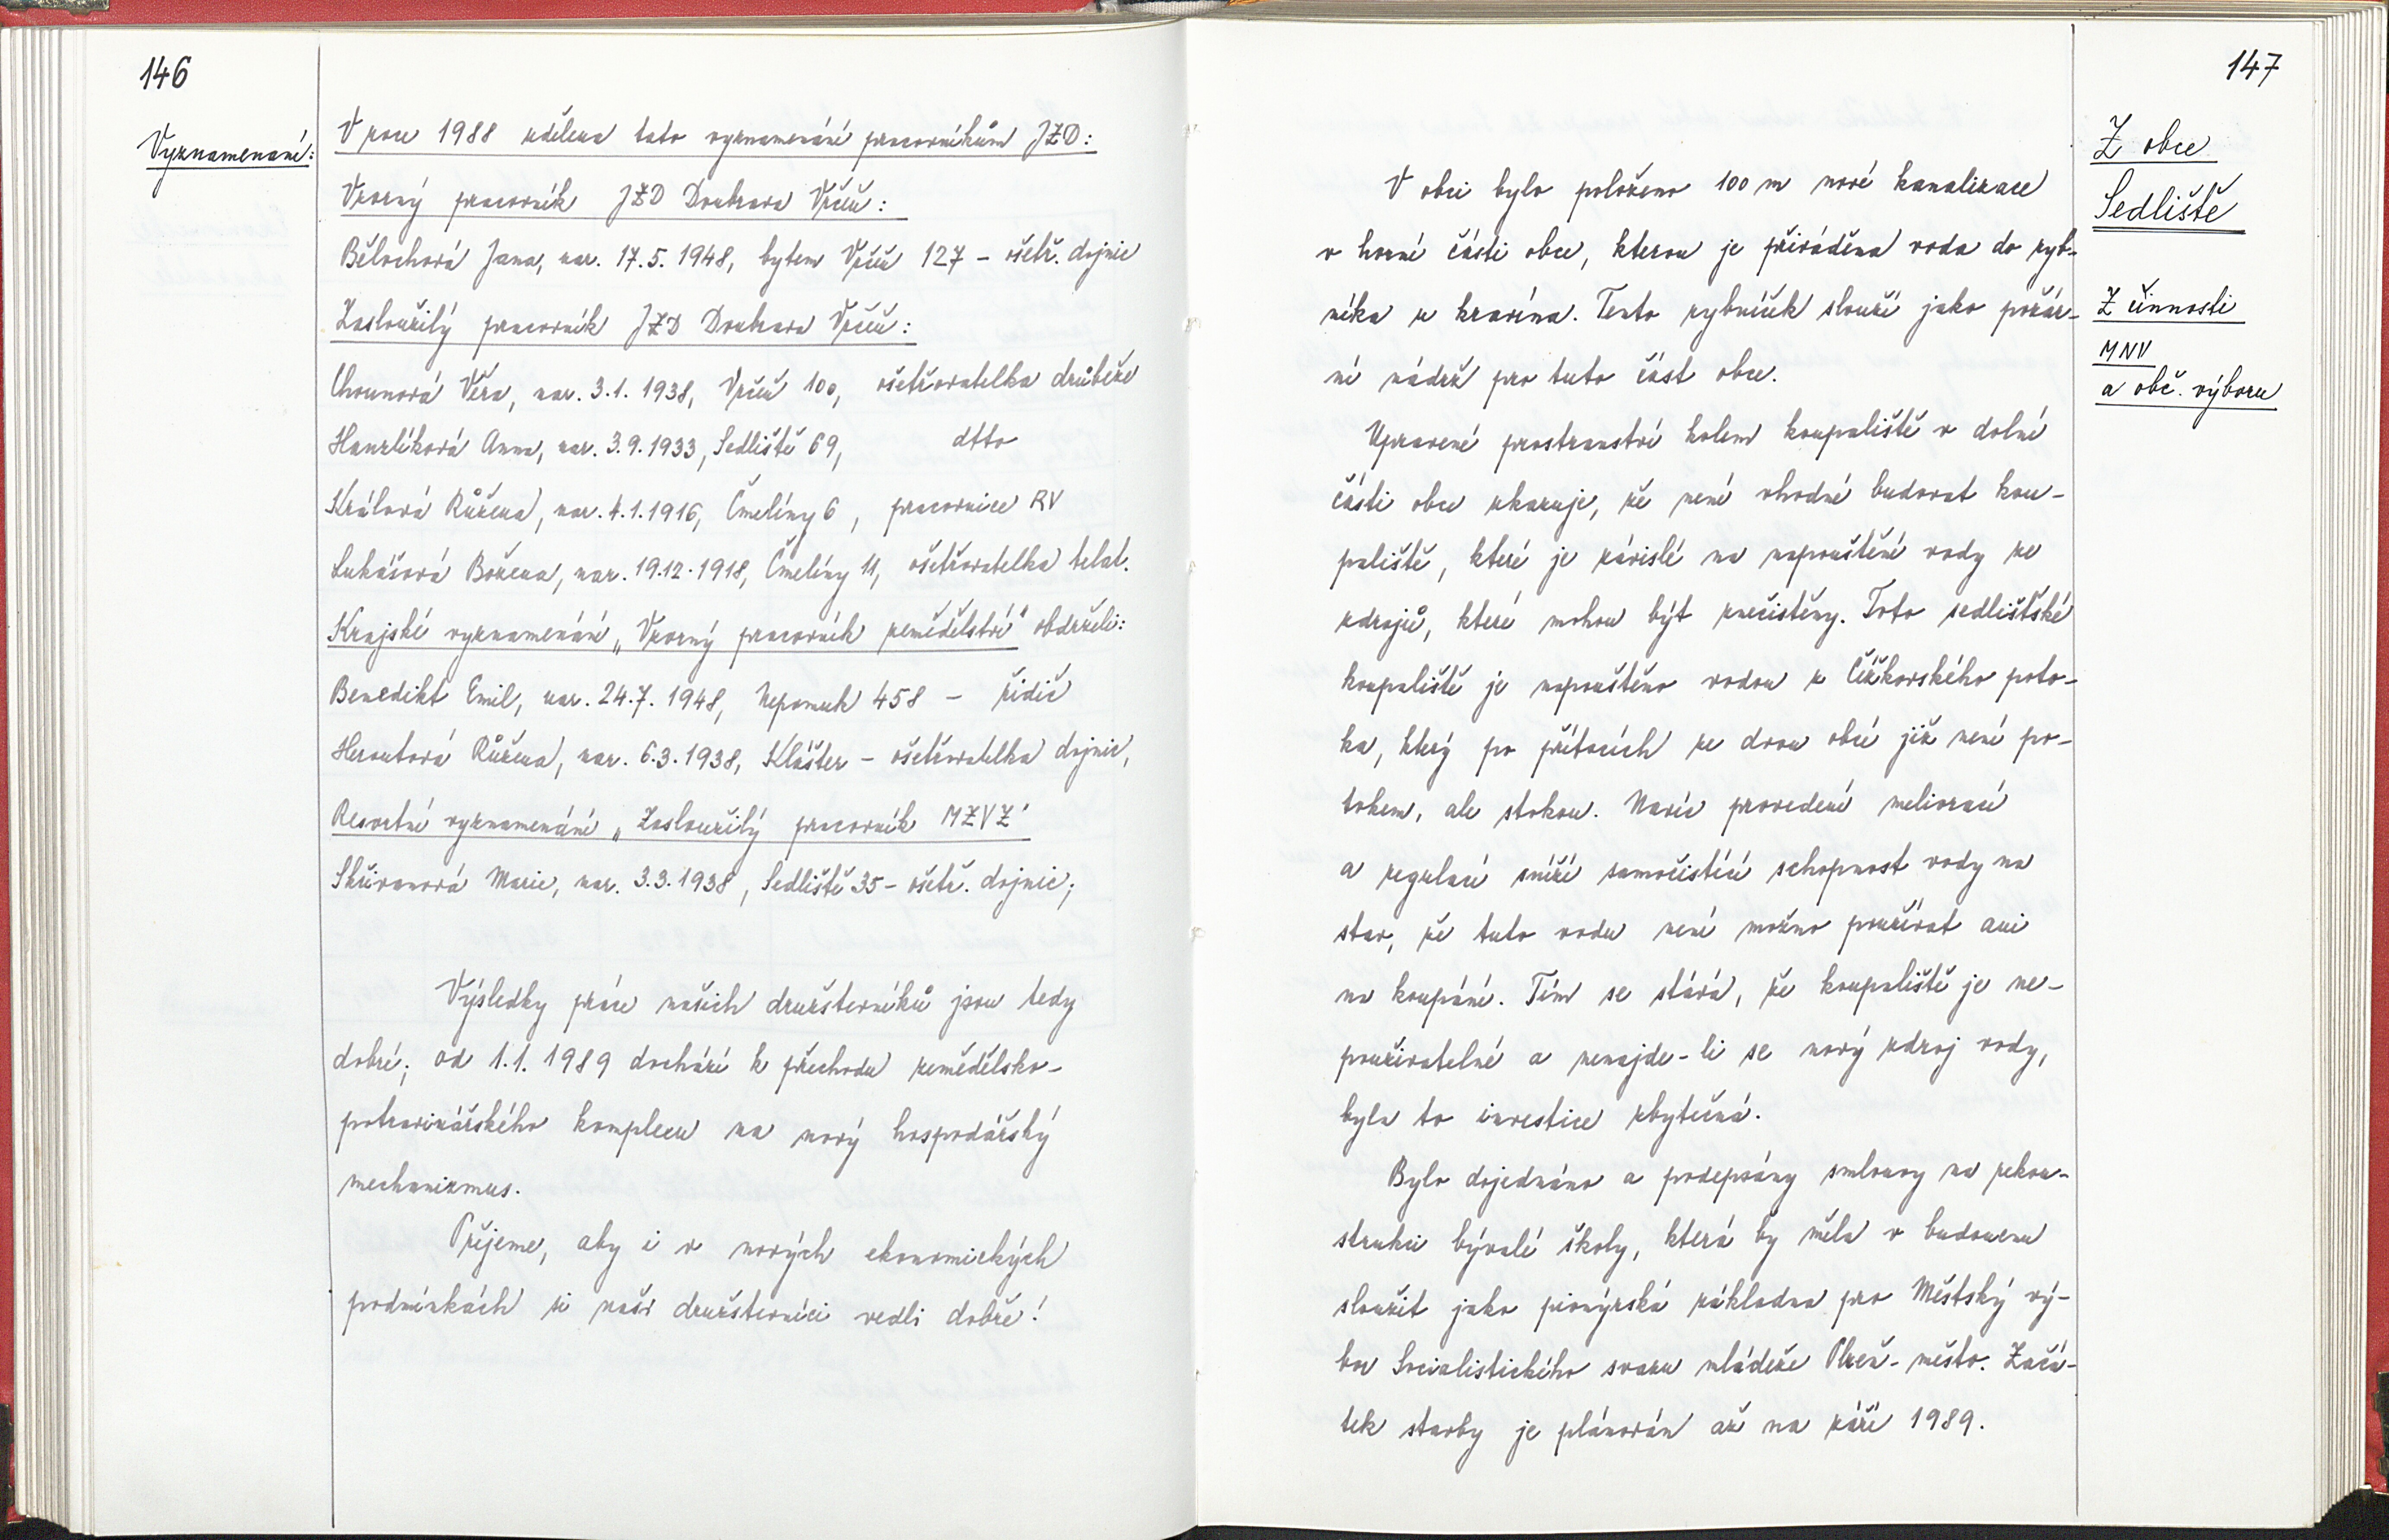 146
Vyznamenání:
V roce 1988 udělena tato vyznamenání pracovníkům JZD:
Vzorný pracovník JZD Doubrava Vrčeň:
Bělochová Jana, nar. 17.5.1948, bytem Vrčeň 127 - ošetř. dojnic
Zasloužilý pracovník JZD Doubrava Vrčeň:
Chounová Věra, nar. 3.1.1938, Vrčeň 100, ošetřovatelka drůbeže
Hanzlíková Anna, nar. 3.9.1933, Sedliště 69, dtto
Králová Růžena, nar. 4.1.1916, Čmelíny 6, pracovnice RV
Lukášová Božena, nar. 19.12.1918, Čmelíny 11, ošetřovatelka telat.
Krajské vyznamenání „Vzorný pracovník zemědělství" obdrželi:
Benedikt Emil, nar. 24.7.1948, Nepomuk 458 - řidič
Heroutová Růžena, nar. 6.3.1938, Klášter - ošetřovatelka dojnic,
Resortní vyznamenání „Zasloužilý pracovník MZVŽ"
Skřivanová Marie, nar. 3.3.1938, Sedliště 35 - ošetř. dojnic;
Výsledky práce našich družstevníků jsou tedy
dobré; od 1.1.1989 dochází k přechodu zemědělsko-
potravinářského komplexu na nový hospodářský
mechanizmus.
Přejeme, aby i v nových ekonomických
podmínkách si naši družstevníci vedli dobře!
147
Z obce
Sedliště
Z činnosti
MNV
a obč. výboru
V obci bylo položeno 100 m nové kanalizace
v horní části obce, kterou je přiváděna voda do ryb-
níka u kravína. Tento rybníček slouží jako požár-
ní nádrž pro tuto část obce.
Upravené prostranství kolem koupaliště v dolní
části obce ukazuje, že není vhodné budovat kou-
paliště, které je závislé na napouštění vody ze
zdrojů, které mohou být znečistěny. Toto sedlištské
koupaliště je napouštěno vodou z Čížkovského poto-
ka, který po přítocích ze dvou obcí již není po-
tokem, ale stokou. Navíc provedení meliorací
a regulací sníží samočistící schopnost vody na
stav, že tuto vodu není možno používat ani
na koupání. Tím se stává, že koupaliště je ne-
použivatelné a nenajde-li se nový zdroj vody,
byla to investice zbytečná.
Bylo dojednáno a podepsány smlouvy na rekon-
strukci bývalé školy, která by měla v budoucnu
sloužit jako pionýrská základna pro Městský vý-
bor Socialistického svazu mládeže Plzeň-město. Začá-
tek stavby je plánován až na září 1989.